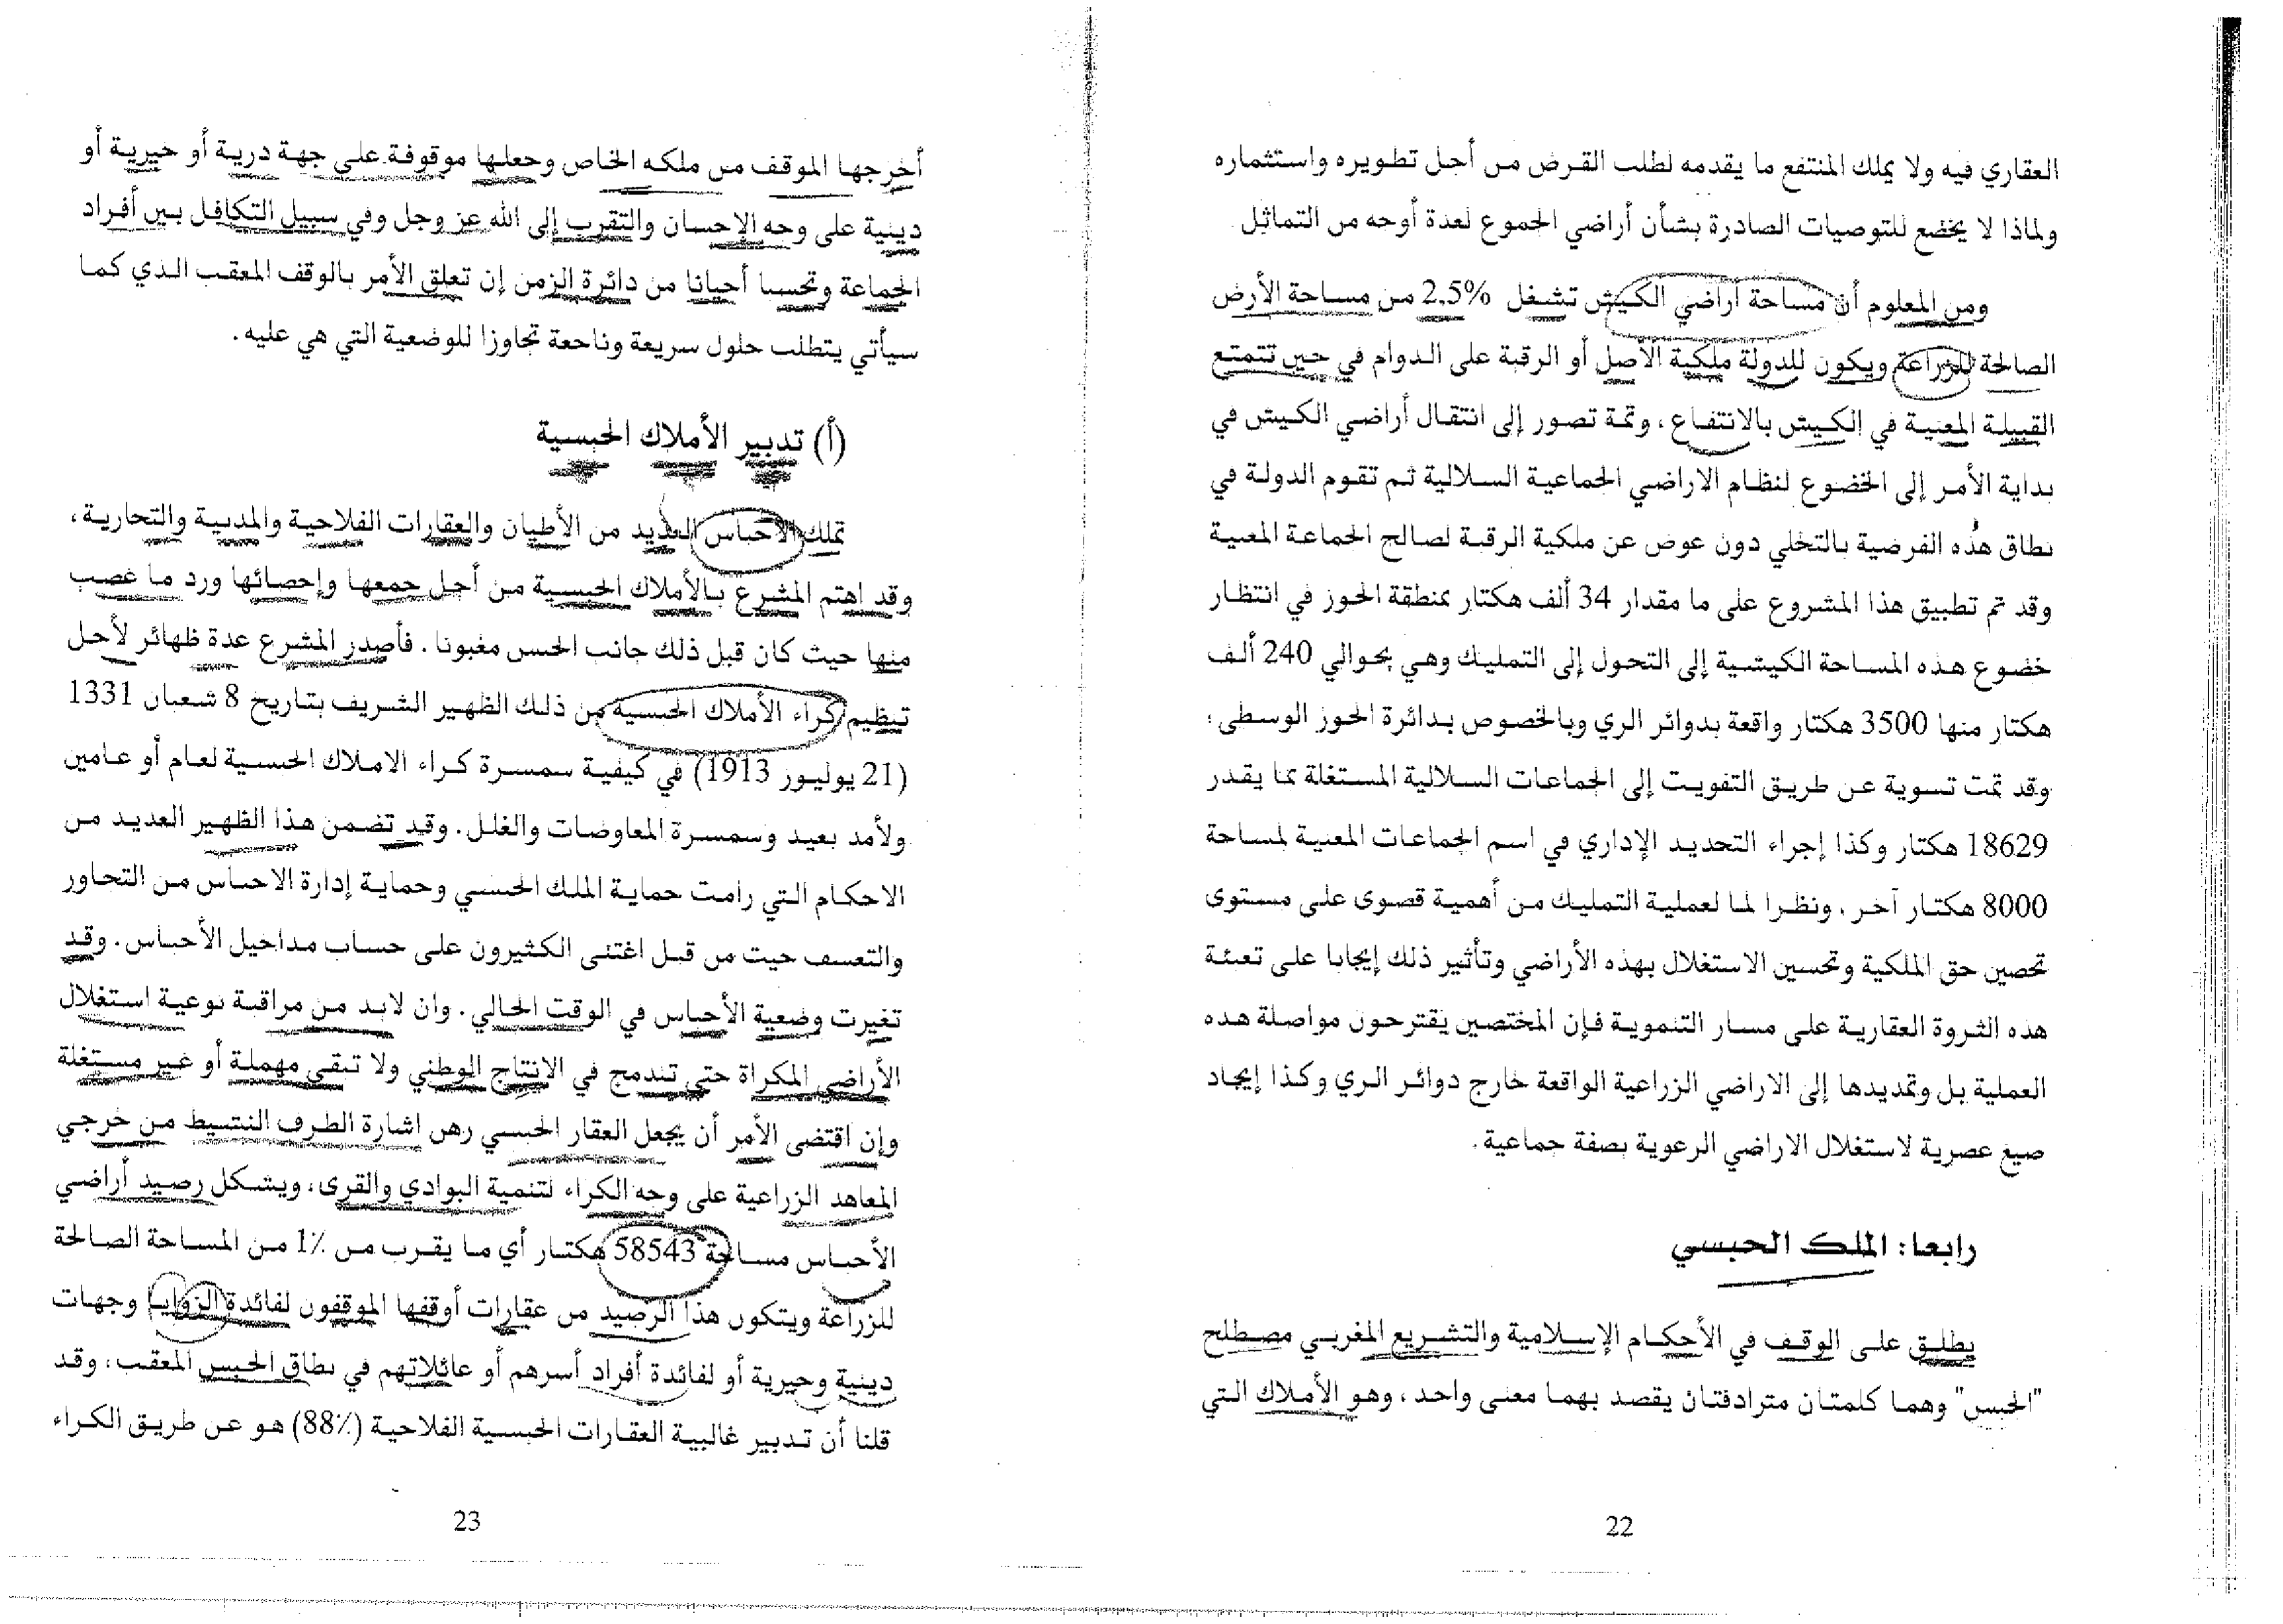 العقاري فيه ولا يملك المنتفع ما يقدمه لطلب القرض من أجل تطويره واستثماره
ولماذا لا يخضع للتوصيات الصادرة بشأن أراضي الجموع لعدة أوجه من التماثل.
ومن المعلوم أن مساحة أراضي الكيش تشغل 2,5% من مساحة الأرض
الصالحة للزراعة ويكون للدولة ملكية الأصل أو الرقبة على الدوام في حين تتمتع
القبيلة المعنية في الكيش بالانتفاع، وثمة تصور إلى انتقال أراضي الكيش في
بداية الأمر إلى الخضوع لنظام الاراضي الجماعية السلالية ثم تقوم الدولة في
نطاق هذه الفرضية بالتخلي دون عوض عن ملكية الرقبة لصالح الجماعة المعنية
وقد تم تطبيق هذا المشروع على ما مقدار 34 ألف هكتار بمنطقة الحوز في انتظار
خضوع هذه المساحة الكيشية إلى التحول إلى التمليك وهي بحوالي 240 ألف
هكتار منها 3500 هكتار واقعة بدوائر الري وبالخصوص بدائرة الحوز الوسطى؛
وقد تمت تسوية عن طريق التفويت إلى الجماعات السلالية المستغلة بما يقدر
18629 هكتار وكذا إجراء التحديد الإداري في اسم الجماعات المعنية لمساحة
8000 هكتار آخر. ونظرا لما لعملية التمليك من أهمية قصوى على مستوى
تحصين حق الملكية وتحسين الاستغلال بهذه الأراضي وتأثير ذلك إيجابا على تعبئة
هذه الثروة العقارية على مسار التنموية فإن المختصين يقترحون مواصلة هده
العملية بل وتمديدها إلى الاراضي الزراعية الواقعة خارج دوائر الري وكذا إيجاد
صيغ عصرية لاستغلال الاراضي الرعوية بصفة جماعية.
رابعا: الملك الحبسي
يطلق على الوقف في الأحكام الإسلامية والتشريع المغربي مصطلح
"الحبس" وهما كلمتان مترادفتان يقصد بهما معنى واحد، وهو الأملاك التي
22
أخرجها الموقف من ملكه الخاص وجعلها موقوفة على جهة درية أو خيرية أو
دينية على وجه الإحسان والتقرب إلى الله عز وجل وفي سبيل التكافل بين أفراد
الجماعة وتحسبا أحيانا من دائرة الزمن إن تعلق الأمر بالوقف المعقب الذي كما
سيأتي يتطلب حلول سريعة وناجعة تجاوزا للوضعية التي هي عليه.
(أ) تدبير الأملاك الحبسية
تملك الأحباس العديد من الأطيان والعقارات الفلاحية والمدنية والتجارية،
وقد اهتم المشرع بالأملاك الحبسية من أجل جمعها وإحصائها ورد ما غصب
منها حيث كان قبل ذلك جانب الحبس مغبونا. فأصدر المشرع عدة ظهائر لأجل
تنظيم كراء الأملاك الحبسية من ذلك الظهير الشريف بتاريخ 8 شعبان 1331
(21 يوليوز 1913) في كيفية سمسرة كراء الاملاك الحبسية لعام أو عامين
ولأمد بعيد وسمسرة المعاوضات والغلل. وقد تضمن هذا الظهير العديد من
الاحكام التي رامت حماية الملك الحبسي وحماية إدارة الاحباس من التجاوز
والتعسف حيت من قبل اغتنى الكثيرون على حساب مداخيل الأحباس. وقد
تغيرت وضعية الأحباس في الوقت الحالي. وان لابد من مراقبة نوعية استغلال
الأراضي المكراة حتى تندمج في الانتاج الوطني ولا تبقى مهملة أو غير مستغلة
وإن اقتضى الأمر أن يجعل العقار الحبسي رهن اشارة الطرف النتسيط من خرجي
المعاهد الزراعية على وجه الكراء لتنمية البوادي والقرى، ويشكل رصيد أراضي
الأحباس مساحة 58543 هكتار أي ما يقرب من 1٪ من المساحة الصالحة
للزراعة ويتكون هذا الرصيد من عقارات أوقفها الموقفون لفائدة الزوايا وجهات
دينية وخيرية أو لفائدة أفراد أسرهم أو عائلاتهم في نطاق الحبس المعقب، وقد
قلنا أن تدبير غالبية العقارات الحبسية الفلاحية (88٪) هو عن طريق الكراء
23